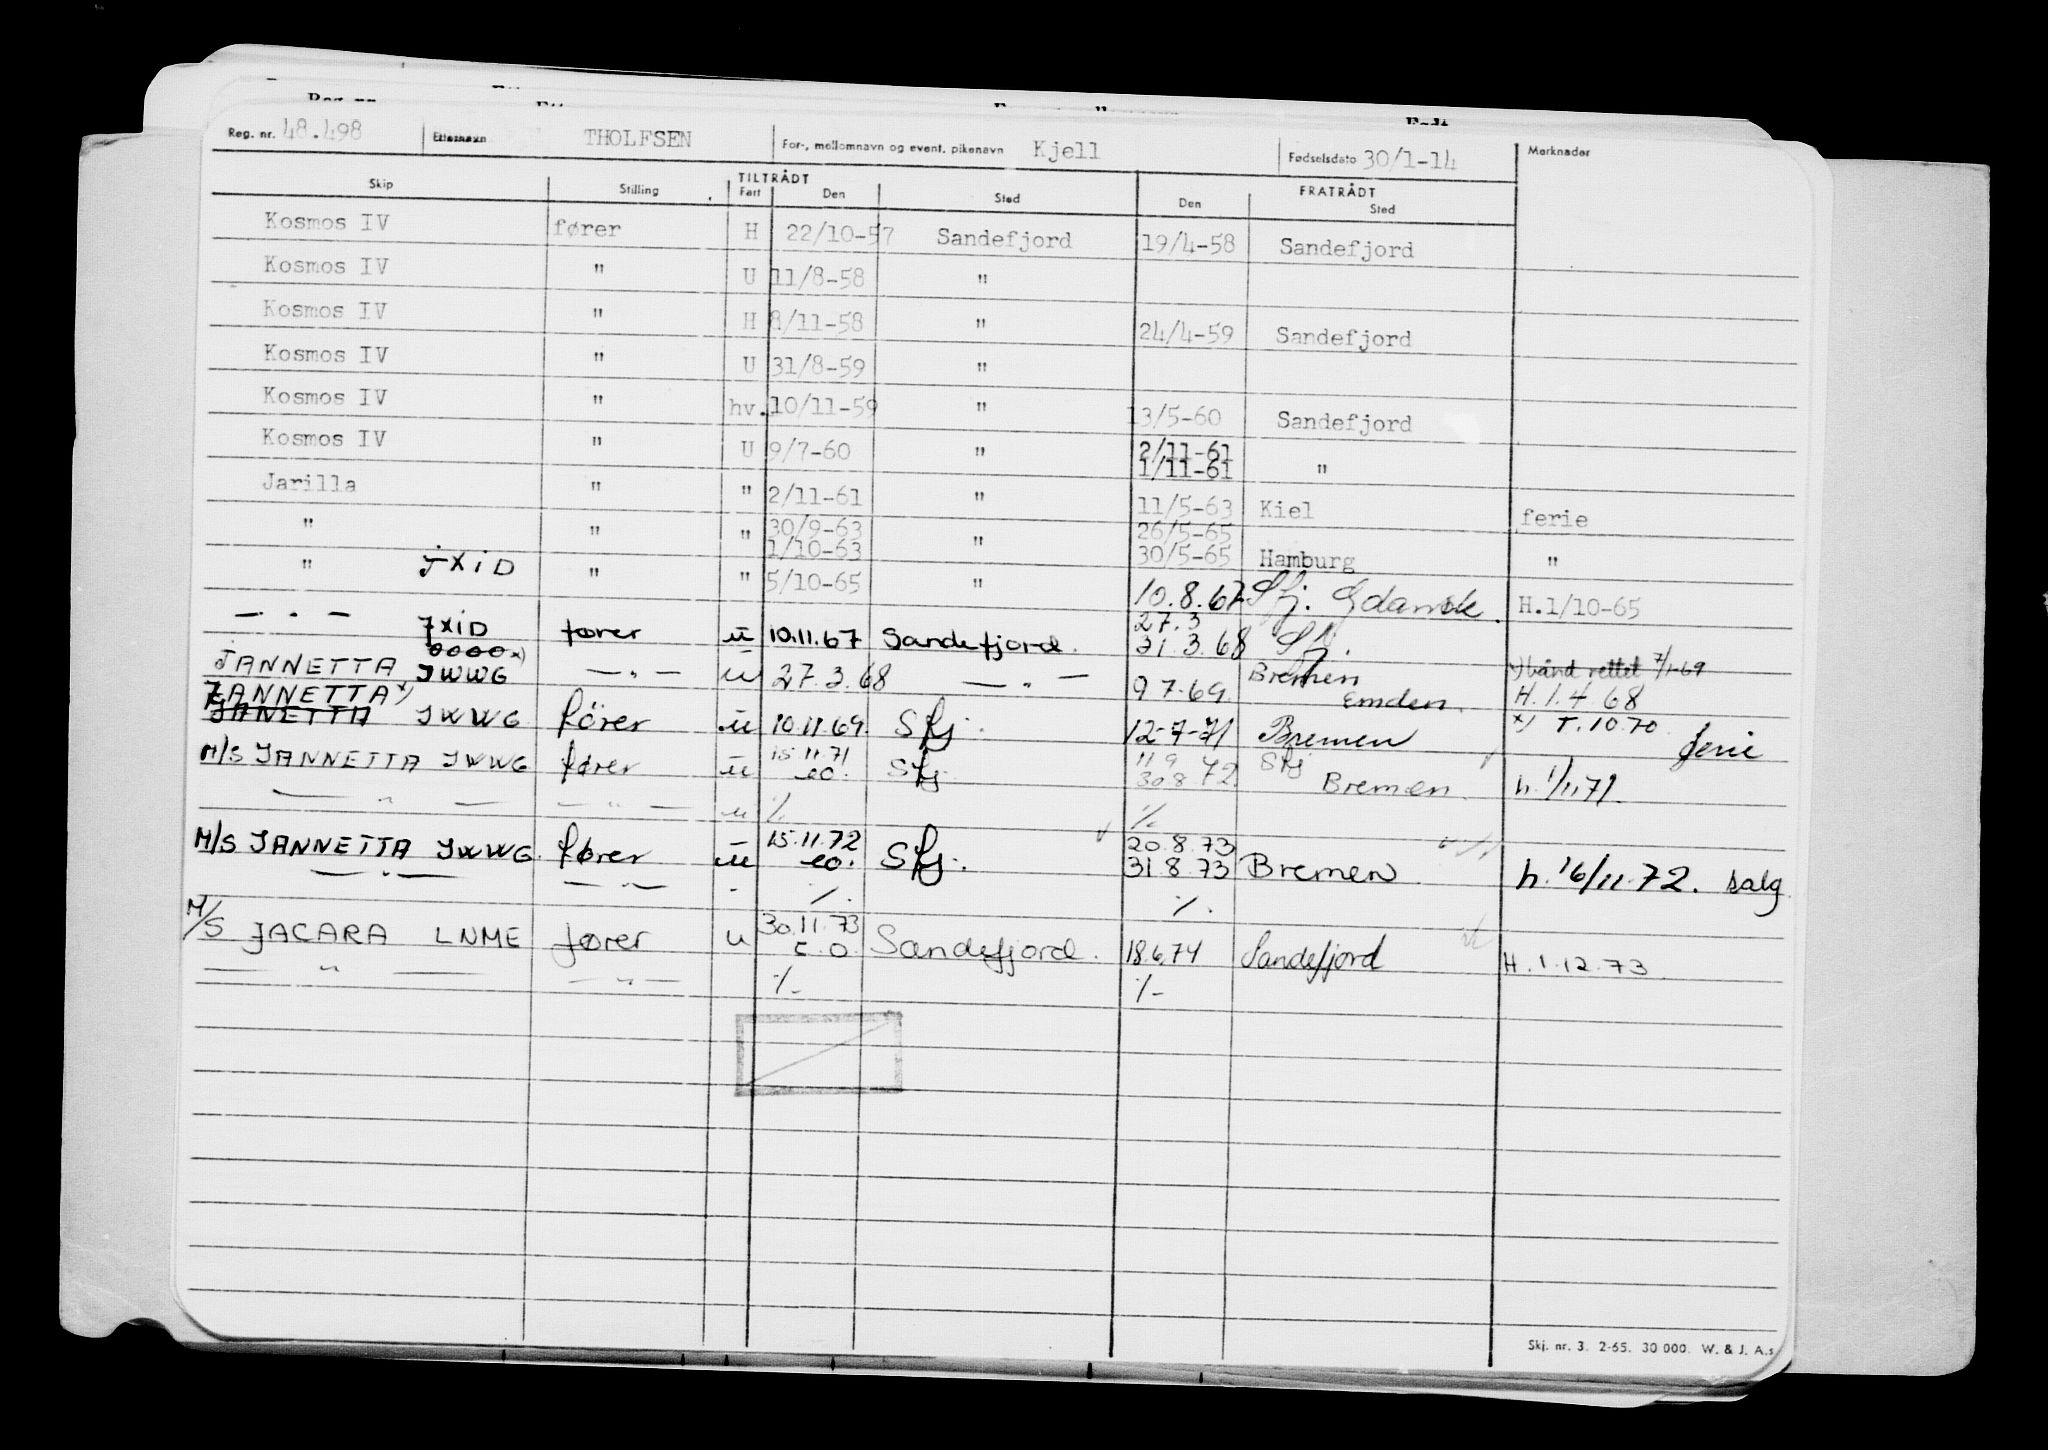 Reg. nr. 48.498 Etternavn THOLFSEN For-, mellomnavn og event. pikenavn Kjell Fødselsdato 30/1-14 Merknader
TILTRÅDT FRATRÅDT
Skip Stilling Fart Den Sted Den Sted
Kosmos IV fører H 22/10-57 Sandefjord 19/4-58 Sandefjord
Kosmos IV " U 11/8-58 "
Kosmos IV " H 8/11-58 " 24/4-59 Sandefjord
Kosmos IV " U 31/8-59 "
Kosmos IV " hv. 10/11-59 " 13/5-60 Sandefjord
Kosmos IV " U 9/7-60 " 2/11-61
1/11-61 "
Jarilla " " 2/11-61 " 11/5-63 Kiel ferie
" " " 30/9-63 26/5-65
1/10-63 " 30/5-65 Hamburg "
" JXID " " 5/10-65 " 10.8.67 Sfj. Gdansk. H.1/10-65
— " — JXID fører u 10.11.67 Sandefjord. 27.3
31.3.68 Sfj.
JANNETTA JWWG — " — u 27.3.68 — " — 9 7.69. Bremen Emden. x) bånd rettet 7/1-69
H.1.4 68
JANNETTA x)
JANETTA JWWG fører u 10.11.69. Sfj. 12-7-71 Bremen x) T.10.70. ferie
M/S JANNETTA JWWG fører u 15.11.71 eo. Sfj. 11 9
30.8.72. Sfj Bremen. h. 1/11 71.
— " — — " — u ./. ./.
M/S JANNETTA JWWG. fører u 15.11.72 eo. Sfj. 20.8.73
31.8.73 Bremen h. 16/11.72. salg
— " — — " — " ./. ./.
M/S JACARA LNME fører u 30.11.73 E.O. Sandefjord. 18.6.74 Sandefjord H.1.12.73.
— " — — " — ./. ./.
Skj. nr. 3. 2-65. 30 000. W. & J. A.s